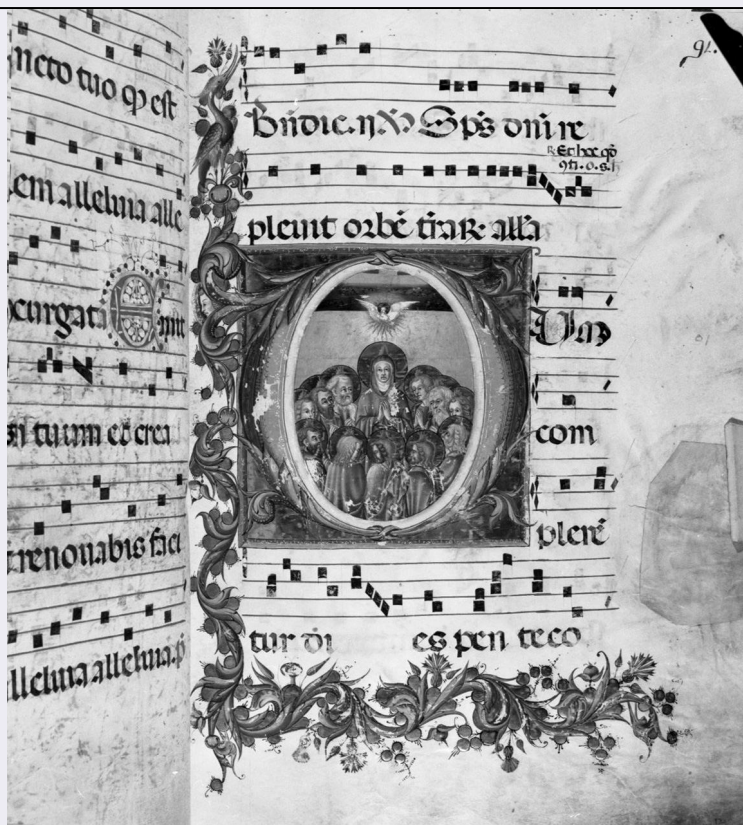 ncto tuo qꝫ est
em alleluia alle
Emit
si tuum et crea
renouabis faci
lleluia alleluia. p
91.
Sp̄s dn̄i re
R. Et hoc qd̄
9ti. o. s. h
pleuit orbē tr̄aꝝ all̄a
DUm
com
plerē
tur di es pen teco